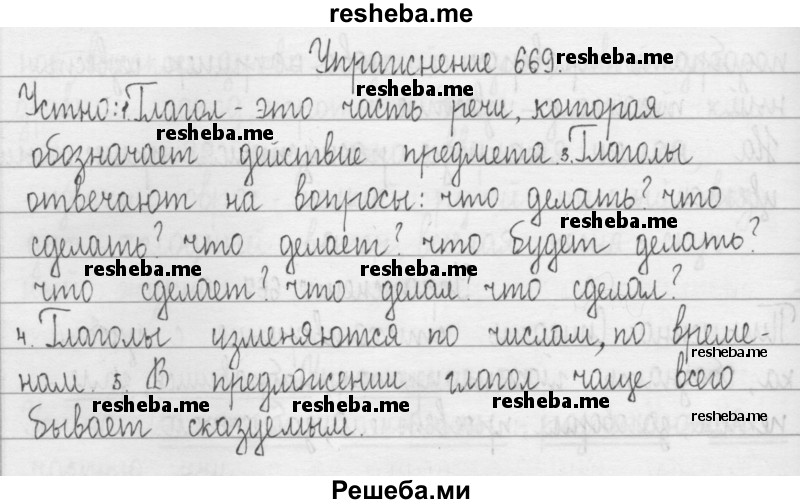 resheba.me
Упражнение 669. resheba.me
Устно: 1. Глагол - это часть речи, которая
resheba.me
обозначает действие предмета. 3. Глаголы
отвечают на вопросы: что делать? что
resheba.me
сделать? что делает? что будет делать?
resheba.me resheba.me
что сделает? что делал что сделал?
4. Глаголы изменяются по числам, по време-
resheba.me
нам. 5. В предложении глагол чаще всего
resheba.me resheba.me
бывает сказуемым. resheba.me
Решеба.ми